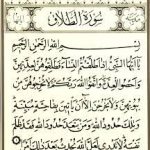 سورة الطلاق
بسم الله الرحمن الرحيم
يا أيها النبي إذا طلقتم النساء فطلقوهن لعدتهن
وأحصوا العدة واتقوا الله ربكم لا تخرجوهن من
بيوتهن ولا يخرجن إلا أن يأتين بفاحشة مبينة
وتلك حدود الله ومن يتعد حدود الله فقد ظلم
نفسه لا تدري لعل الله يحدث بعد ذلك أمرا